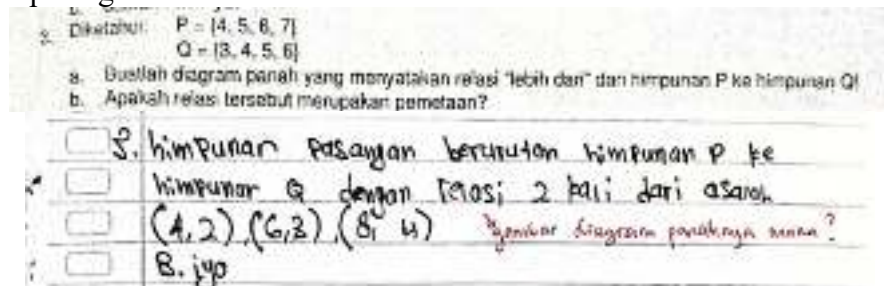 Diketahui: P = {4, 5, 6, 7}
Q = {3, 4, 5, 6}
a. Buatlah diagram panah yang menyatakan relasi "lebih dari" dari himpunan P ke himpunan Q!
b. Apakah relasi tersebut merupakan pemetaan?
3. himpunan pasangan berurutan himpunan P ke
himpunan Q dengan relasi 2 kali dari
(4,2), (6,3), (8, 4) gambar diagram panahnya mana?
B. iya